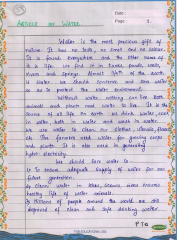 Date :
Page : 1.
ARTICLE ON WATER
Water is the most precious gift of
nature. It has no taste, no smell and no colour.
It is found everywhere and the other name of
it is life. we find it in tanks, ponds, wells,
rivers and springs. Almost of the earth
is water. we should conserve and save water
so as to protect the water environment.
Without water nothing can live. Both
animals and plants need water to live. It is the
source of all life on earth. we drink water, cook
in water, bath in water and wash in water.
We use water to clean our clothes, utensils, floors
etc. The farmers need water for growing crops
and plants. It is also used in generating
hydro electricity.
We should save water to
To ensure adequate supply of water for our
future generation.
Clean water in lakes, oceans, rivers ensures
healthy life of water animals.
Millions of people around the world are still
deprived of clean and safe drinking water
PTO